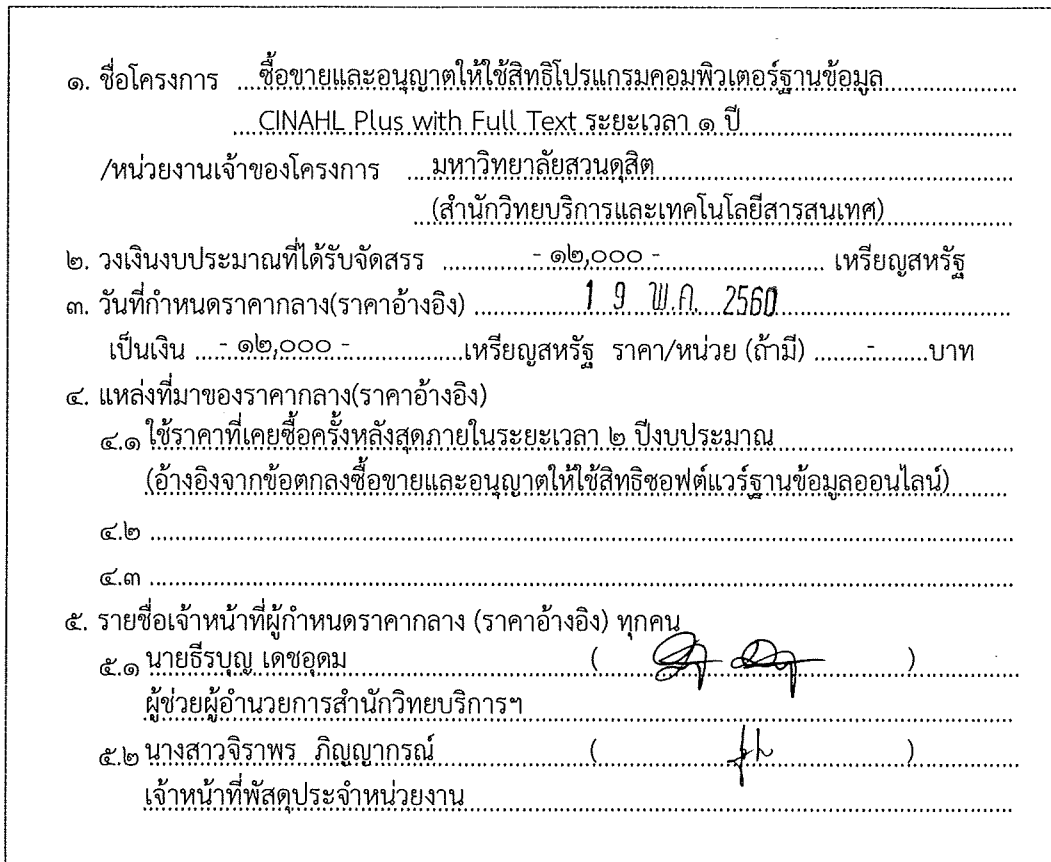 ๑. ชื่อโครงการ ซื้อขายและอนุญาตให้ใช้สิทธิโปรแกรมคอมพิวเตอร์ฐานข้อมูล
CINAHL Plus with Full Text ระยะเวลา ๑ ปี
/หน่วยงานเจ้าของโครงการ มหาวิทยาลัยสวนดุสิต
(สำนักวิทยบริการและเทคโนโลยีสารสนเทศ)
๒. วงเงินงบประมาณที่ได้รับจัดสรร - ๑๒,๐๐๐ - เหรียญสหรัฐ
๓. วันที่กำหนดราคากลาง(ราคาอ้างอิง) 19 พ.ค. 2560
เป็นเงิน - ๑๒,๐๐๐ - เหรียญสหรัฐ ราคา/หน่วย (ถ้ามี) - บาท
๔. แหล่งที่มาของราคากลาง(ราคาอ้างอิง)
๔.๑ ใช้ราคาที่เคยซื้อครั้งหลังสุดภายในระยะเวลา ๒ ปีงบประมาณ
(อ้างอิงจากข้อตกลงซื้อขายและอนุญาตให้ใช้สิทธิซอฟต์แวร์ฐานข้อมูลออนไลน์)
๔.๒
๔.๓
๕. รายชื่อเจ้าหน้าที่ผู้กำหนดราคากลาง (ราคาอ้างอิง) ทุกคน
๕.๑ นายธีรบุญ เดชอุดม ( )
ผู้ช่วยผู้อำนวยการสำนักวิทยบริการฯ
๕.๒ นางสาวจิราพร ภิญญากรณ์ ( )
เจ้าหน้าที่พัสดุประจำหน่วยงาน